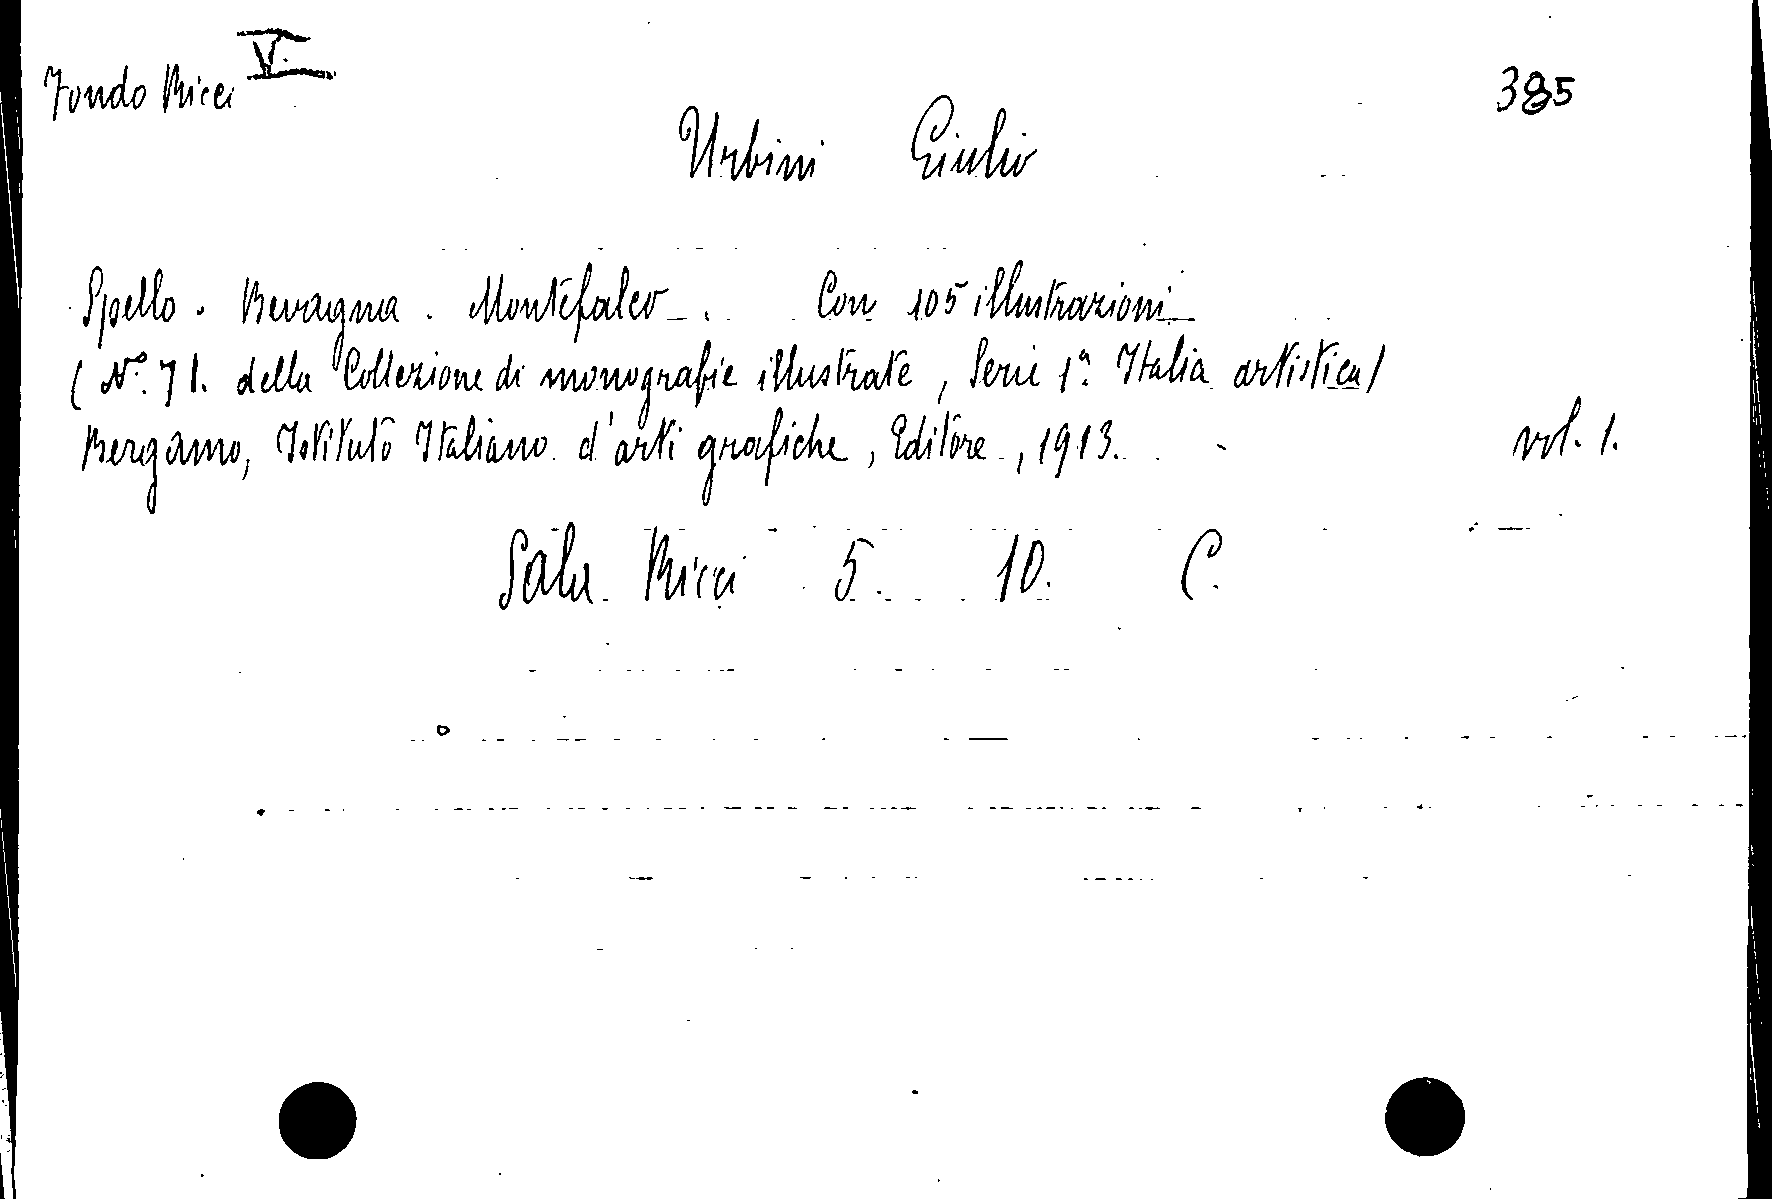 Fondo Ricci V. 385
Urbini Giulio
Spello. Bevagna. Montefalco. Con 105 illustrazioni
(N.º 71. della Collezione di monografie illustrate, Serie 1ª. Italia artistica)
Bergamo, Istituto Italiano d'arti grafiche, Editore, 1913. vol. 1.
Sala Ricci 5. 10. C.